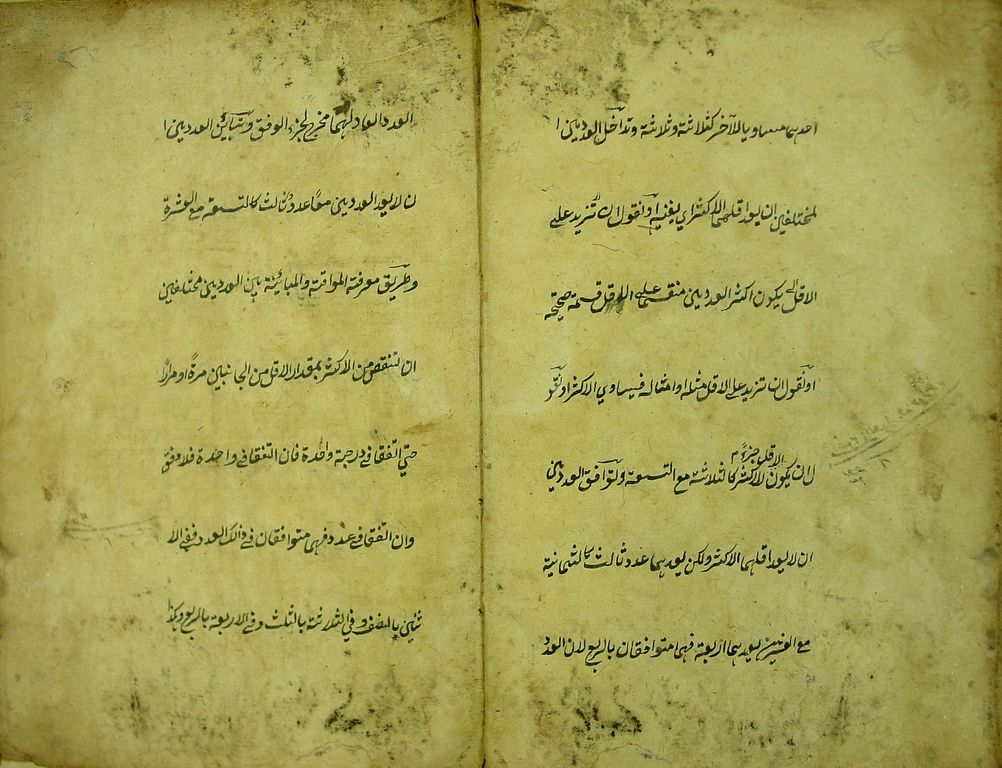 احدهما مساويا للآخر كثلاثة وثلاثة وتداخل العددين ا
لمختلفين ان يعد اقلهما الاكثر اي يفنيه او نقول ان تزيد على
الاقل يكون اكثر العددين منقسما على الاقل قسمة صحيحة
او نقول ان تزيد على الاقل مثله او امثاله فيساوي الاكثر او نقو
ل ان يكون الاقل جزءا للاكثر كالثلاثة مع التسعة وتوافق العددين
ان لا يعد اقلهما الاكثر ولكن يعدهما عدد ثالث كالثمانية
مع العشرين يعدهما اربعة فهما متوافقان بالربع لان العدد
العدد العاد لهما مخرج لجزء الوفق وتباين العددين ا
ن لا يعد العددين معا عدد ثالث كالتسعة مع العشرة
وطريق معرفة الموافقة والمباينة بين العددين مختلفين
ان تنقص من الاكثر بمقدار الاقل من الجانبين مرة او مرارا
حتي اتفقا في درجة واحدة فان اتفقا في واحدة فلا وفق
وان اتفقا في عدد فهما متوافقان في ذالك العدد ففي الا
ثنين بالنصف وفي الثلاثة بالثلث وفي الاربعة بالربع وهكذا